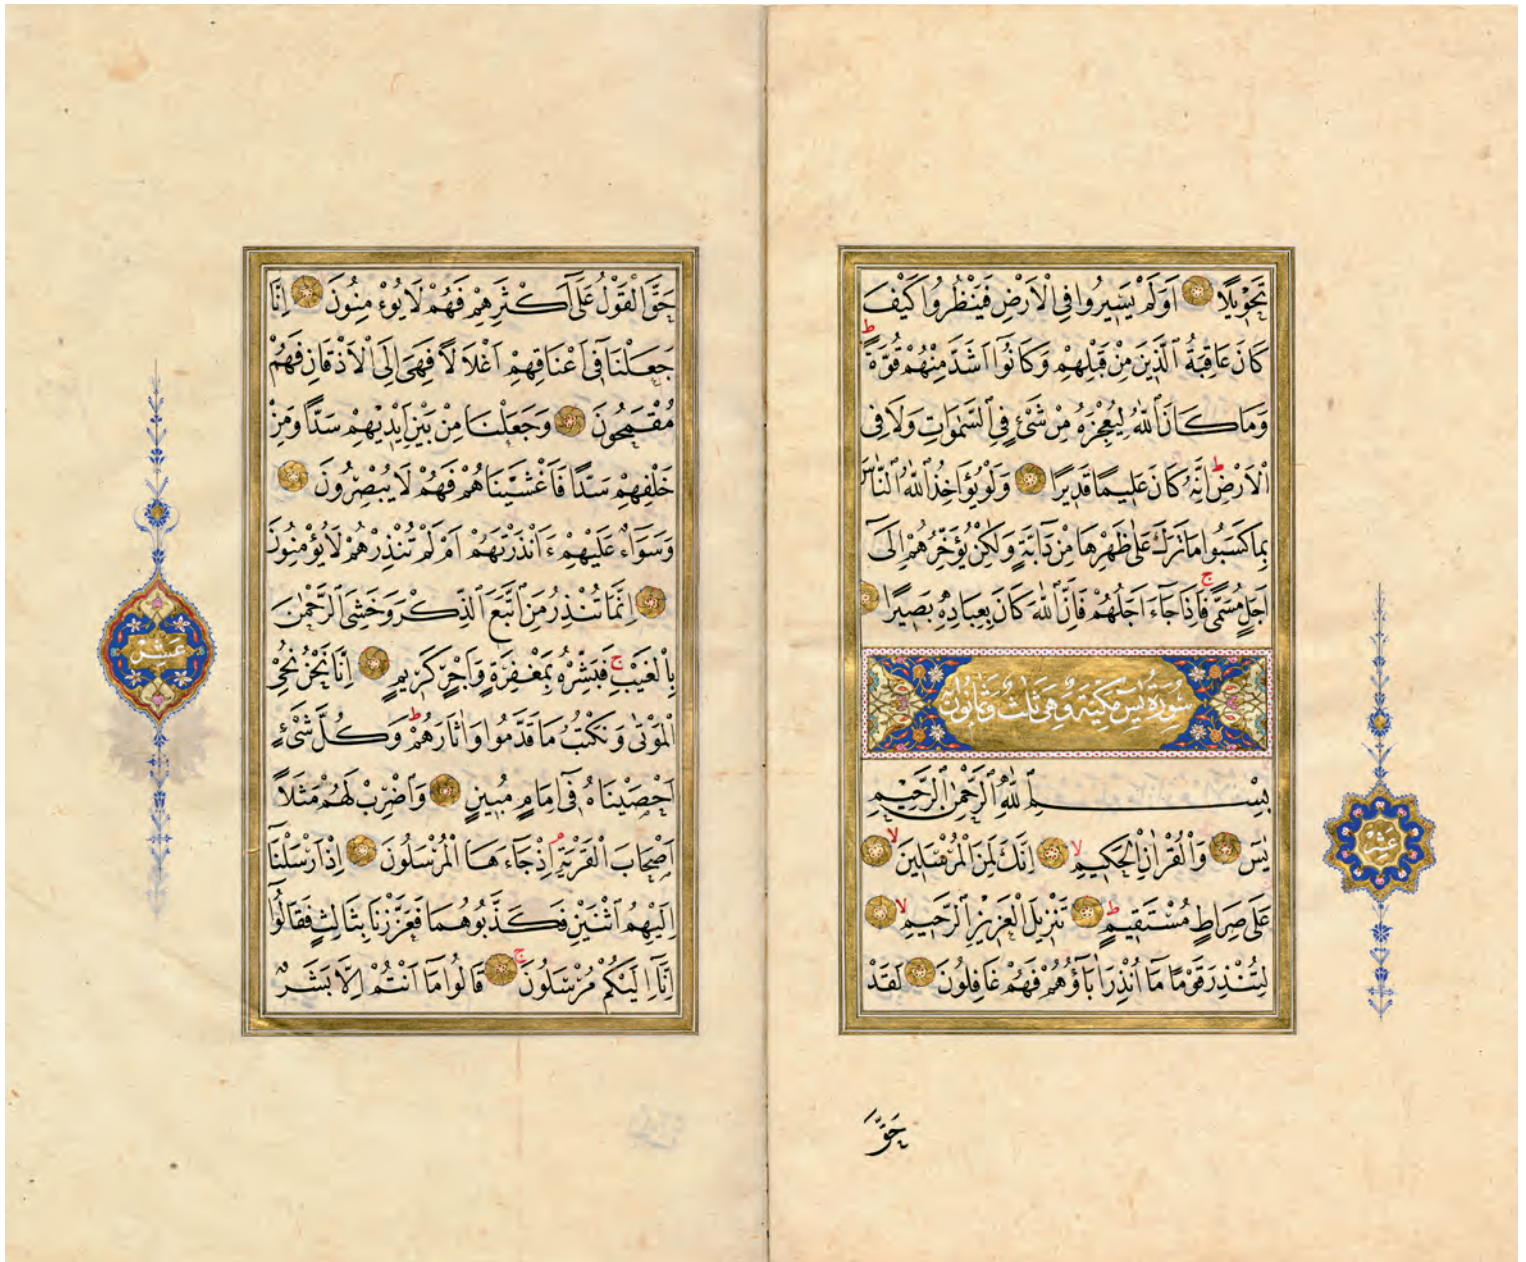 تَحْوِيلًا اَوَلَمْ يَسِيرُوا فِي الْاَرْضِ فَيَنْظُرُوا كَيْفَ
كَانَ عَاقِبَةُ الَّذِينَ مِنْ قَبْلِهِمْ وَكَانُوا اَشَدَّ مِنْهُمْ قُوَّةً ط
وَمَا كَانَ اللّٰهُ لِيُعْجِزَهُ مِنْ شَىْءٍ فِي السَّمٰوَاتِ وَلَا فِى
الْاَرْضِ ط اِنَّهُ كَانَ عَلِيمًا قَدِيرًا وَلَوْ يُؤَاخِذُ اللّٰهُ النَّاسَ
بِمَا كَسَبُوا مَا تَرَكَ عَلٰى ظَهْرِهَا مِنْ دَابَّةٍ وَلٰكِنْ يُؤَخِّرُهُمْ اِلٰىٓ
اَجَلٍ مُسَمًّى ج فَاِذَا جَاءَ اَجَلُهُمْ فَاِنَّ اللّٰهَ كَانَ بِعِبَادِهِ بَصِيرًا
سُورَةُ يٰسٓ مَكِّيَّة وَهِىَ ثَلٰثُ وَثَمَانُونَ اٰيَة
بِسْمِ اللّٰهِ الرَّحْمٰنِ الرَّحِيمِ
يٰسٓ وَالْقُرْاٰنِ الْحَكِيمِ لا اِنَّكَ لَمِنَ الْمُرْسَلِينَ لا
عَلٰى صِرَاطٍ مُسْتَقِيمٍ ط تَنْزِيلَ الْعَزِيزِ الرَّحِيمِ لا
لِتُنْذِرَ قَوْمًا مَا اُنْذِرَ اٰبَاؤُهُمْ فَهُمْ غَافِلُونَ لَقَدْ
حَقَّ
عَشْرٌ
حَقَّ الْقَوْلُ عَلٰٓى اَكْثَرِهِمْ فَهُمْ لَا يُؤْمِنُونَ اِنَّا
جَعَلْنَا فِٓى اَعْنَاقِهِمْ اَغْلَالًا فَهِىَ اِلَى الْاَذْقَانِ فَهُمْ
مُقْمَحُونَ وَجَعَلْنَا مِنْ بَيْنِ اَيْدِيهِمْ سَدًّا وَمِنْ
خَلْفِهِمْ سَدًّا فَاَغْشَيْنَاهُمْ فَهُمْ لَا يُبْصِرُونَ
وَسَوَاءٌ عَلَيْهِمْ ءَاَنْذَرْتَهُمْ اَمْ لَمْ تُنْذِرْهُمْ لَا يُؤْمِنُونَ
اِنَّمَا تُنْذِرُ مَنِ اتَّبَعَ الذِّكْرَ وَخَشِىَ الرَّحْمٰنَ
بِالْغَيْبِ ج فَبَشِّرْهُ بِمَغْفِرَةٍ وَاَجْرٍ كَرِيمٍ اِنَّا نَحْنُ نُحْيِ
الْمَوْتٰى وَنَكْتُبُ مَا قَدَّمُوا وَاٰثَارَهُمْ ط وَكُلَّ شَىْءٍ
اَحْصَيْنَاهُ فِٓى اِمَامٍ مُبِينٍ وَاضْرِبْ لَهُمْ مَثَلًا
اَصْحَابَ الْقَرْيَةِ م اِذْ جَاءَهَا الْمُرْسَلُونَ اِذْ اَرْسَلْنَا
اِلَيْهِمُ اثْنَيْنِ فَكَذَّبُوهُمَا فَعَزَّزْنَا بِثَالِثٍ فَقَالُوا
اِنَّا اِلَيْكُمْ مُرْسَلُونَ ج قَالُوا مَا اَنْتُمْ اِلَّا بَشَرٌ
عَشْرٌ